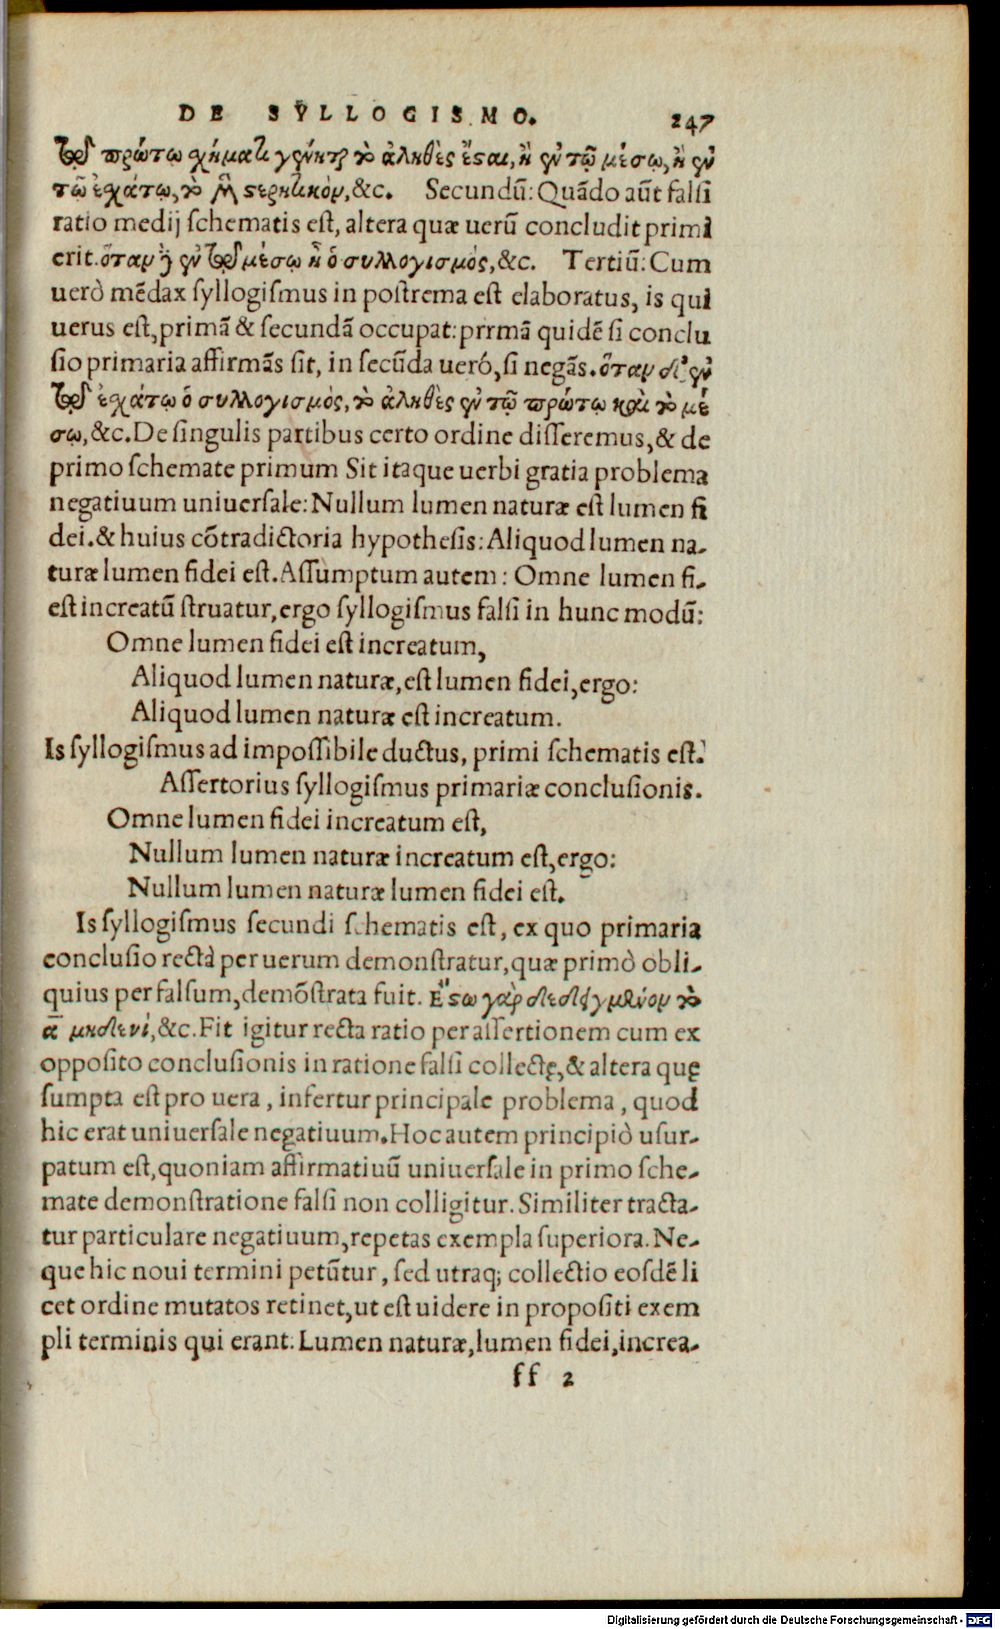 DE SYLLOGISMO. 247
τῷ πρώτῳ χήματι γένηται τὸ ἀληθὲς ἔςαι, ἢ ἐν τῷ μέσῳ, ἢ ἐν
τῷ ἐχάτῳ, τὸ μὲν ςερητικὸν, &c. Secundū: Quādo aūt falſi
ratio medij ſchematis eſt, altera quæ uerū concludit primi
erit. ὅταν δὲ ἐν τῷ μέσῳ ᾖ ὁ συλλογισμὸς, &c. Tertiū: Cum
uerò mēdax ſyllogiſmus in poſtrema eſt elaboratus, is qui
uerus eſt, primā & ſecundā occupat: prrmā quidē ſi conclu
ſio primaria affirmās ſit, in ſecūda ueró, ſi negās. ὅταν δὲ ἐν
τῷ ἐχάτῳ ὁ συλλογισμὸς, τὸ ἀληθὲς ἐν τῷ πρώτῳ καὶ τὸ μέ
σῳ, &c. De ſingulis partibus certo ordine diſſeremus, & de
primo ſchemate primum Sit itaque uerbi gratia problema
negatiuum uniuerſale: Nullum lumen naturæ eſt lumen fi
dei. & huius cōtradictoria hypotheſis: Aliquod lumen na-
turæ lumen fidei eſt. Aſſumptum autem: Omne lumen fi-
eſt increatū ſtruatur, ergo ſyllogiſmus falſi in hunc modū:
Omne lumen fidei eſt increatum,
Aliquod lumen naturæ, eſt lumen fidei, ergo:
Aliquod lumen naturæ eſt increatum.
Is ſyllogiſmus ad impoſſibile ductus, primi ſchematis eſt.
Aſſertorius ſyllogiſmus primariæ concluſionis.
Omne lumen fidei increatum eſt,
Nullum lumen naturæ increatum eſt, ergo:
Nullum lumen naturæ lumen fidei eſt.
Is ſyllogiſmus ſecundi ſchematis eſt, ex quo primaria
concluſio rectà per uerum demonſtratur, quæ primò obli-
quius per falſum, demōſtrata fuit. Ἔςω γὰρ δεδειγμένον τὸ
α μηδενὶ, &c. Fit igitur recta ratio per aſſertionem cum ex
oppoſito concluſionis in ratione falſi collectę, & altera quę
ſumpta eſt pro uera, infertur principale problema, quod
hic erat uniuerſale negatiuum. Hoc autem principiò uſur-
patum eſt, quoniam affirmatiuū uniuerſale in primo ſche-
mate demonſtratione falſi non colligitur. Similiter tracta-
tur particulare negatiuum, repetas exempla ſuperiora. Ne-
que hic noui termini petūtur, ſed utraq; collectio eoſdē li
cet ordine mutatos retinet, ut eſt uidere in propoſiti exem
pli terminis qui erant. Lumen naturæ, lumen fidei, increa-
ff 2
Digitalisierung gefördert durch die Deutsche Forschungsgemeinschaft - DFG